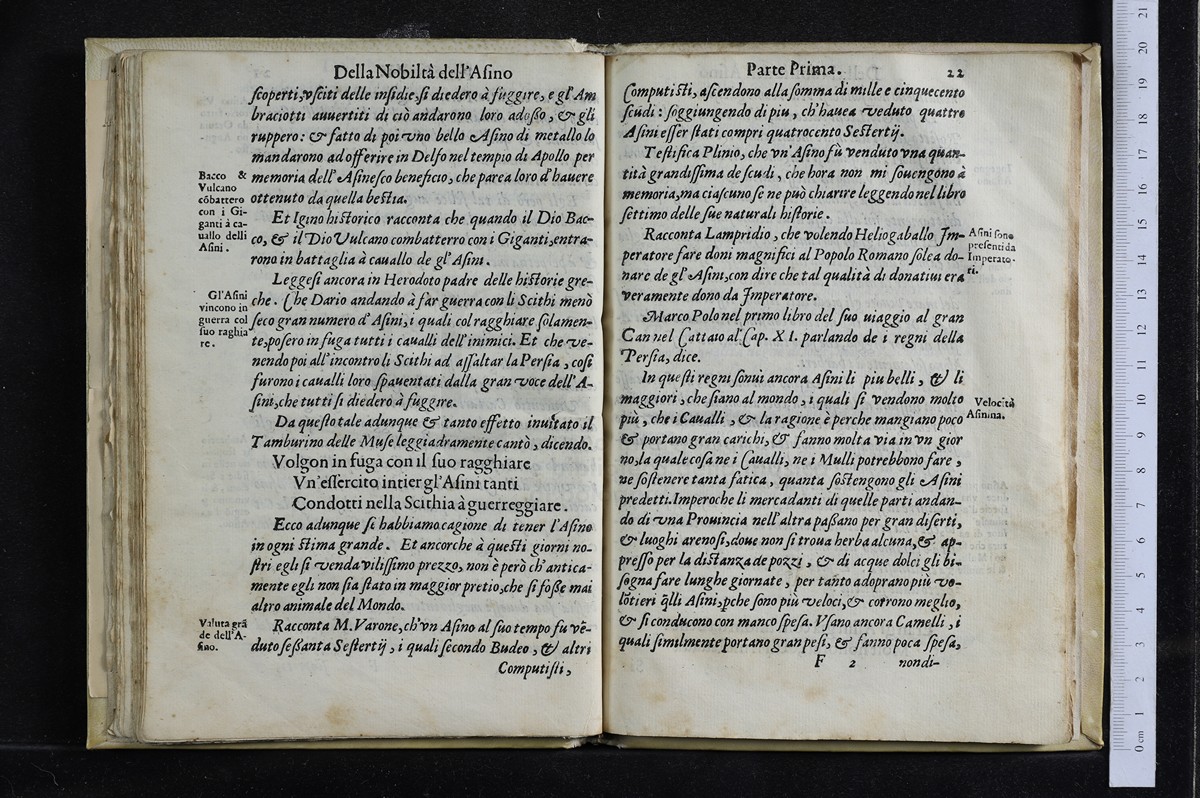 Della Nobiltà dell'Asino
scoperti, vsciti delle insidie, si diedero à fuggire, e gl'Am
braciotti auuertiti di ciò andarono loro adosso, & gli
ruppero: & fatto di poi vno bello Asino di metallo lo
mandarono ad offerire in Delfo nel tempio di Apollo per
memoria dell'Asinesco beneficio, che parea loro d'hauere
ottenuto da quella bestia.
Bacco &
Vulcano
cōbattero
con i Gi-
ganti à ca-
uallo delli
Asini.
Et Igino historico racconta che quando il Dio Bac-
co, & il Dio Vulcano combatterro con i Giganti, entra-
rono in battaglia à cauallo de gl'Asini.
Leggesi ancora in Herodoto padre delle historie gre-
che. Che Dario andando à far guerra con li Scithi menò
seco gran numero d'Asini, i quali col ragghiare solamen-
te, posero in fuga tutti i caualli dell'inimici. Et che ve-
nendo poi all'incontro li Scithi ad assaltar la Persia, così
furono i caualli loro spauentati dalla gran voce dell'A-
sini, che tutti si diedero à fuggire.
Gl'Asini
vincono in
guerra col
suo raghia
re.
Da questo tale adunque & tanto effetto inuitato il
Tamburino delle Muse leggiadramente cantò, dicendo.
Volgon in fuga con il suo ragghiare
Vn'essercito intier gl'Asini tanti
Condotti nella Scithia à guerreggiare.
Ecco adunque se habbiamo cagione di tener l'Asino
in ogni stima grande. Et ancorche à questi giorni no-
stri egli si venda vilissimo prezzo, non è però ch'antica-
mente egli non sia stato in maggior pretio, che si fosse mai
altro animale del Mondo.
Valuta grā
de dell'A-
sino.
Racconta M. Varone, ch'vn Asino al suo tempo fu vē-
duto sessanta Sestertij, i quali secondo Budeo, & altri
Computisti,
Parte Prima. 22
Computisti, ascendono alla somma di mille e cinquecento
scudi: soggiungendo di piu, ch'hauea veduto quattro
Asini esser stati compri quatrocento Sestertij.
Testifica Plinio, che vn'Asino fù venduto vna quan-
tità grandissima de scudi, che hora non mi souengono à
memoria, ma ciascuno se ne può chiarire leggendo nel libro
settimo delle sue naturali historie.
Racconta Lampridio, che volendo Heliogaballo Im-
peratore fare doni magnifici al Popolo Romano solea do-
nare de gl'Asini, con dire che tal qualità di donatiui era
veramente dono da Imperatore.
Asini sono
presenti da
Imperato-
ri.
Marco Polo nel primo libro del suo uiaggio al gran
Can nel Cattaio al Cap. XI. parlando de i regni della
Persia, dice.
In questi regni sonui ancora Asini li piu belli, & li
maggiori, che siano al mondo, i quali si vendono molto
più, che i Caualli, & la ragione è perche mangiano poco
& portano gran carichi, & fanno molta via in vn gior
no, la quale cosa ne i Caualli, ne i Mulli potrebbono fare,
ne sostenere tanta fatica, quanta sostengono gli Asini
predetti. Imperoche li mercadanti di quelle parti andan-
do di vna Prouincia nell'altra passano per gran diserti,
& luoghi arenosi, doue non si troua herba alcuna, & ap-
presso per la distanza de pozzi, & di acque dolci gli bi-
sogna fare lunghe giornate, per tanto adoprano più vo-
lōtieri q̄lli Asini, ꝑche sono più veloci, & corrono meglio,
& si conducono con manco spesa. Vsano ancora Camelli, i
quali similmente portano gran pesi, & fanno poca spesa,
Velocità
Asinina.
F 2 nondi-